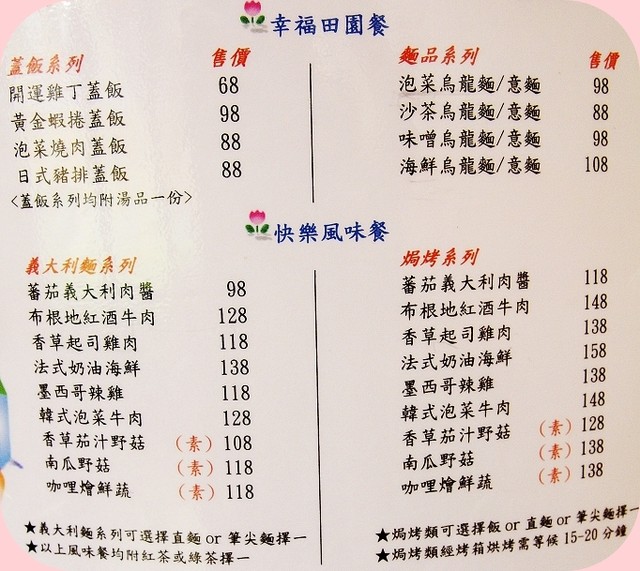 幸福田園餐
蓋飯系列 售價
開運雞丁蓋飯 68
黃金蝦捲蓋飯 98
泡菜燒肉蓋飯 88
日式豬排蓋飯 88
<蓋飯系列均附湯品一份>
麵品系列 售價
泡菜烏龍麵/意麵 98
沙茶烏龍麵/意麵 88
味噌烏龍麵/意麵 98
海鮮烏龍麵/意麵 108
快樂風味餐
義大利麵系列
蕃茄義大利肉醬 98
布根地紅酒牛肉 128
香草起司雞肉 118
法式奶油海鮮 138
墨西哥辣雞 118
韓式泡菜牛肉 128
香草茄汁野菇 (素) 108
南瓜野菇 (素) 118
咖哩燴鮮蔬 (素) 118
★義大利麵系列可選擇直麵 or 筆尖麵擇一
★以上風味餐均附紅茶或綠茶擇一
焗烤系列
蕃茄義大利肉醬 118
布根地紅酒牛肉 148
香草起司雞肉 138
法式奶油海鮮 158
墨西哥辣雞 138
韓式泡菜牛肉 148
香草茄汁野菇 (素) 128
南瓜野菇 (素) 138
咖哩燴鮮蔬 (素) 138
★焗烤類可選擇飯 or 直麵 or 筆尖麵擇一
★焗烤類經烤箱烘烤需等候 15-20 分鐘